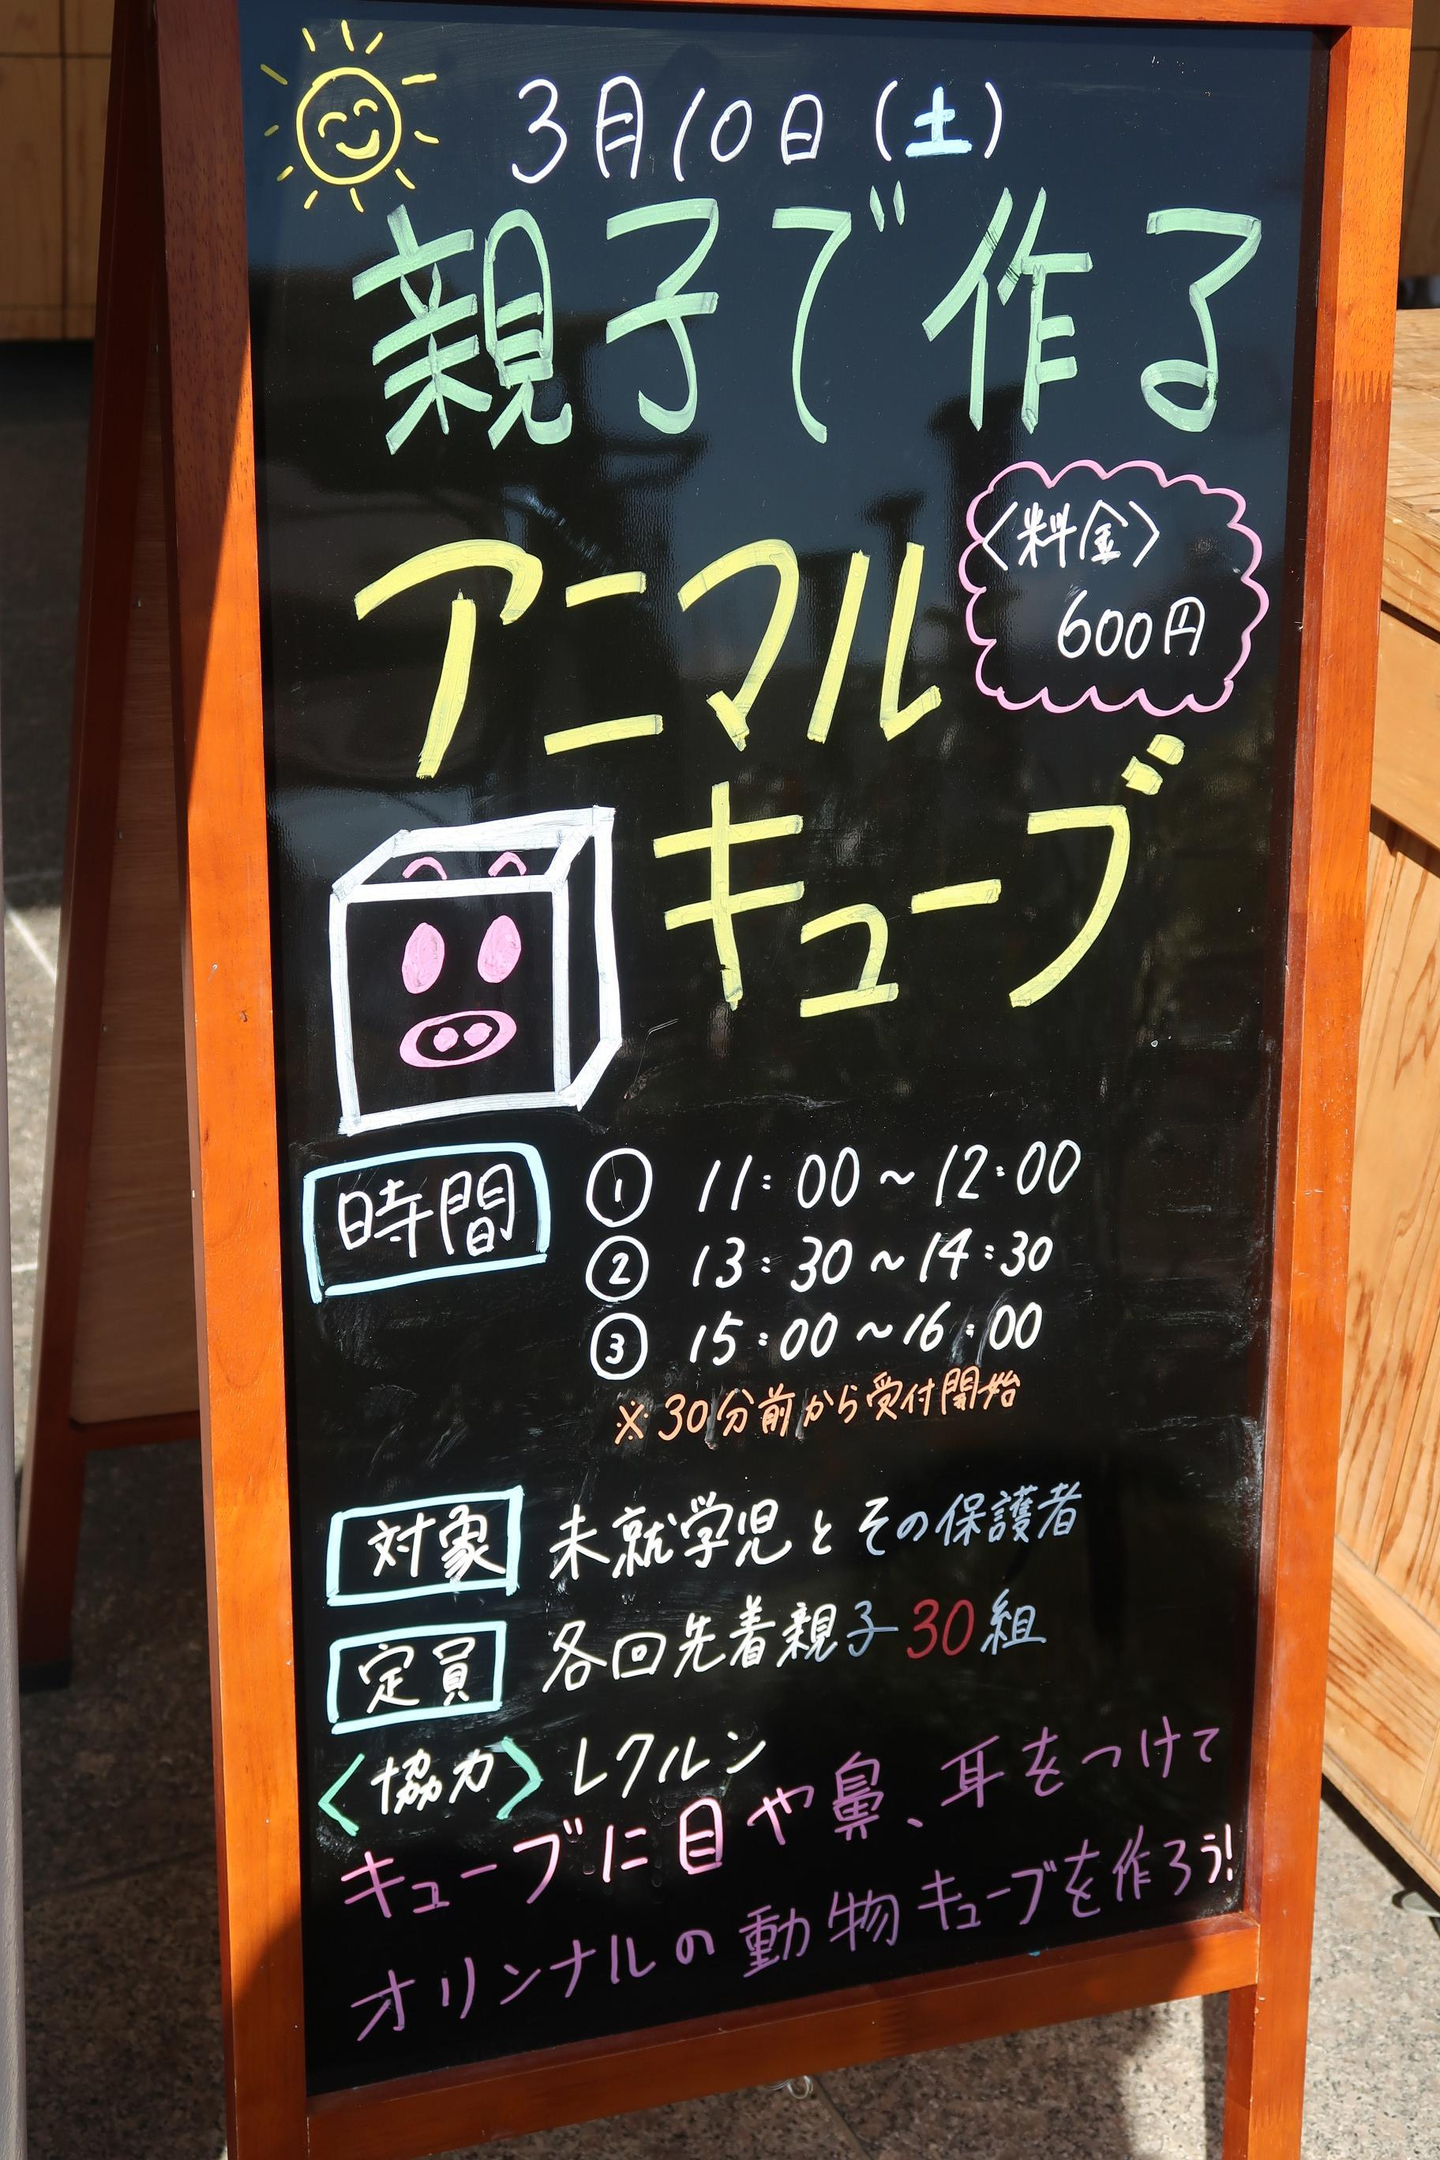 3月10日(土)
親子で作る
アニマル
〈料金〉
600円
キューブ
時間 ① 11:00~12:00
② 13:30~14:30
③ 15:00~16:00
※30分前から受付開始
対象 未就学児とその保護者
定員 各回先着親子30組
〈協力〉レクルン
キューブに目や鼻、耳をつけて
オリンナルの動物キューブを作ろう!